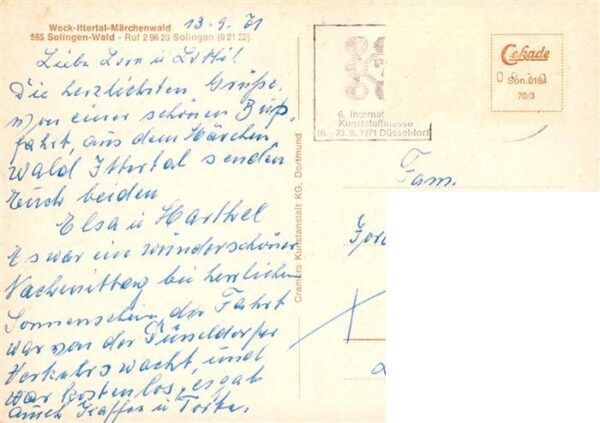 Weck-Ittertal-Märchenwald
565 Solingen-Wald - Ruf 29623 Solingen (02122)
13.9.71
Liebe Lora u. Lothl!
Die herzlichsten Grüße
von einer schönen Bus,
fahrt, aus dem Märchen
wald Ittertal senden
Euch beiden
Elsa u Harthel
Es war ein wunderschöner
Nachmittag bei herrlichen
Sonnenschein, die Fahrt
war von der Düsseldorfer
Verkehrswacht, und
war kostenlos, es gab
auch Kaffee u Torte.
Cramers Kunstanstalt KG, Dortmund
6. Internat
Kunststoffmesse
16. - 23. 9. 1971 Düsseldorf
Cekade
Son. 0164
70/3
Fam.